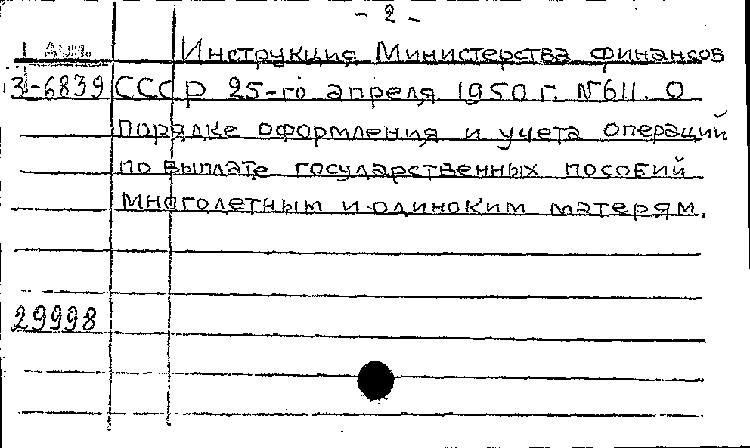 - 2 -
Инструкция Министерства финансов
З-6839 СССР 25-го апреля 1950 г. №611. О
порядке оформления и учета операций
по выплате государственных пособий
многолетным и одиноким матерям.
29998